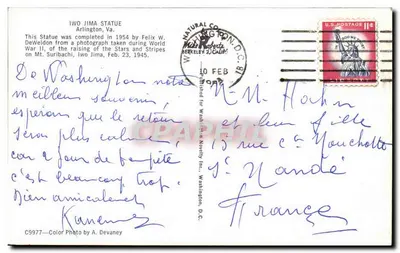 IWO JIMA STATUE
Arlington, Va.
This Statue was completed in 1954 by Felix W.
DeWeldon from a photograph taken during World
War II, of the raising of the Stars and Stripes
on Mt. Suribachi, Iwo Jima, Feb. 23, 1945.
De Washington notre
meilleur souvenir,
esperons que le retour
sera plus calme,
car 2 jours de tempête
c'est beaucoup trop.
Bien amicalement
C9977—Color Photo by A. Devaney
Washington Novelty Inc., Washington, D.C.
WASHINGTON, D.C.
10 FEB
U.S. POSTAGE 11¢
M. M. Hahn
et leur fille
rue Cne Mouchotte
St Mandé
France